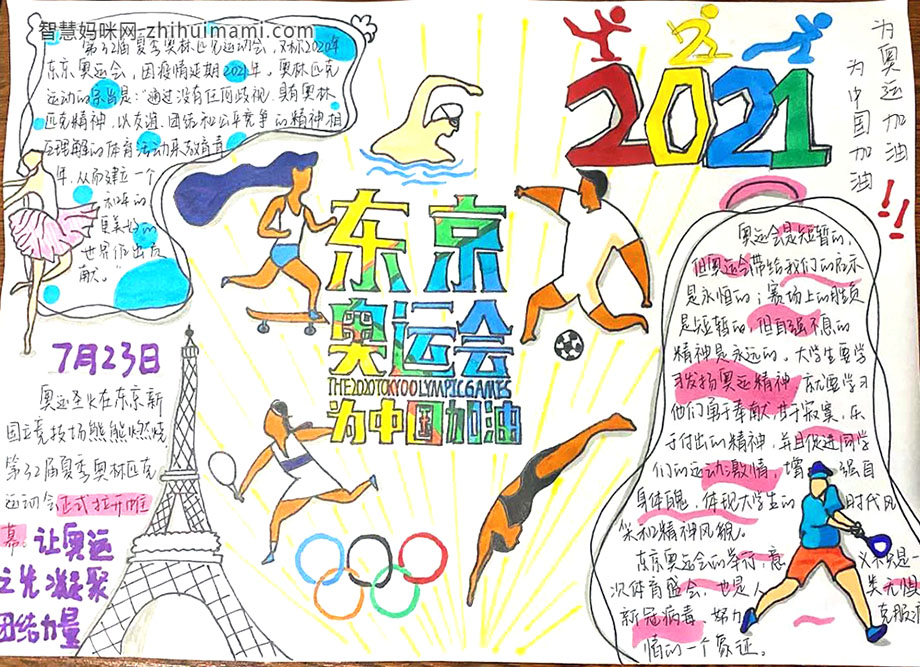 智慧妈咪网-zhihuimami.com
第32届夏季奥林匹克运动会,又称2020年
东京奥运会,因疫情延期2021年。奥林匹克
运动的宗旨是:“通过没有任何歧视、具有奥林
匹克精神,以友谊、团结和公平竞争的精神相
互理解的体育活动来教育青
年,从而建立一个
和平的
更美好的
世界作出贡
献。”
2021
为奥运加油
为中国加油!!
东京
奥运会
THE2020TOKYOOLYMPICGAMES
为中国加油
7月23日
奥运圣火在东京新
国立竞技场熊熊燃烧
第32届夏季奥林匹克
运动会正式拉开帷
幕。让奥运
之光凝聚
团结力量
奥运会是短暂的,
但奥运会带给我们的启示
是永恒的;赛场上的胜负
是短暂的,但自强不息的
精神是永远的。大学生要学
习发扬奥运精神,就要学习
他们勇于奉献、甘于寂寞、乐
于付出的精神,并且促进同学
们的运动激情,增 强自
身体魄,体现大学生的 时代风
采和精神风貌。
东京奥运会的举行,意 义不只是
次体育盛会,也是人 类无惧
新冠病毒、努力 克服
情的一个象征。